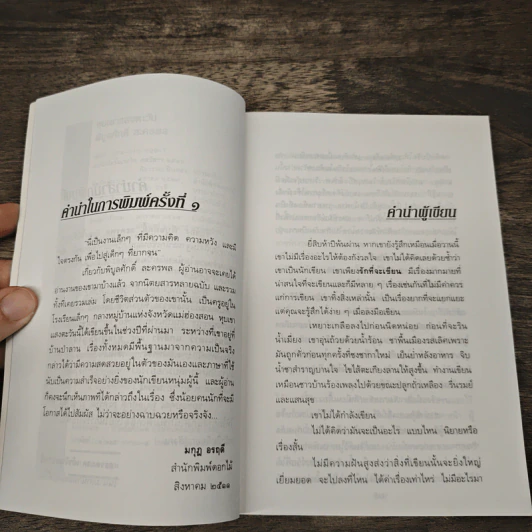 คำนำในการพิมพ์ครั้งที่ ๑
"นี่เป็นงานเล็กๆ ที่มีความคิด ความหวัง และมี
ใจตรงกัน เพื่อไปสู่เด็กๆ ที่ยากจน"
เกี่ยวกับพิบูลศักดิ์ ละครพล ผู้อ่านอาจจะเคยได้
อ่านงานของเขามาบ้างแล้ว จากนิตยสารหลายฉบับ และรวม
ทั้งที่เคยรวมเล่ม โดยชีวิตส่วนตัวของเขานั้น เป็นครูอยู่ใน
โรงเรียนเล็กๆ กลางหมู่บ้านแห่งจังหวัดแม่ฮ่องสอน หุบเขา
แสงตะวันนี้ได้เขียนขึ้นในช่วงปีที่ผ่านมา ระหว่างที่เขาอยู่ที่
บ้านป่าลาน เรื่องทั้งหมดมีพื้นฐานมาจากความเป็นจริง
กล่าวได้ว่ามีความสดสวยอยู่ในตัวของมันเองและภาษาที่ใช้
นับเป็นความสำเร็จอย่างยิ่งของนักเขียนหนุ่มผู้นี้ และผู้อ่าน
ก็คงจะนึกเห็นภาพที่ได้กล่าวถึงในเรื่อง ซึ่งน้อยคนนักที่จะมี
โอกาสได้ไปสัมผัส ไม่ว่าจะอย่างฉาบฉวยหรือจริงจัง...
มกุฏ อรฤดี
สำนักพิมพ์ดอกไม้
สิงหาคม ๒๕๑๑
คำนำผู้เขียน
ยี่สิบห้าปีพ้นผ่าน หากเขายังรู้สึกเหมือนเมื่อวานนี้
เขาไม่มีเรื่องอะไรให้ต้องกังวลใจ เขาไม่ได้คิดเลยด้วยซ้ำว่า
เขาเป็นนักเขียน เขาเพียงรักที่จะเขียน มีเรื่องมากมายที่
น่าสนใจที่จะเขียนและก็มีหลาย ๆ เรื่องเช่นกันที่ไม่มีค่าควร
แก่การเขียน เขาทิ้งสิ่งเหล่านั้น เป็นเรื่องยากที่จะแยกแยะ
แต่คุณจะรู้สึกได้ง่าย ๆ เมื่อลงมือเขียน
เหยาะเกลือลงไปก่อนนิดหน่อย ก่อนที่จะริน
น้ำเมี่ยง เขาอุ่นถ้วยด้วยน้ำร้อน ชาพื้นเมืองรสเลิศเพราะ
มันถูกคั่วก่อนทุกครั้งที่ชงชากาใหม่ เย็นย่ำหลังอาหาร จิบ
น้ำชาสำราญบานใจ ไขไส้ตะเกียงลานให้สูงขึ้น ทำงานเขียน
เหมือนชาวบ้านร้องเพลงไปด้วยขณะปลูกถั่วเหลือง รื่นรมย์
และแสนสุข
เขาไม่ได้กำลังเขียน
ไม่ได้คิดว่ามันจะเป็นอะไร แบบไหน นิยายหรือ
เรื่องสั้น
ไม่มีความฝันสูงส่งว่าสิ่งที่เขียนนั้นจะยิ่งใหญ่
เยี่ยมยอด จะไปลงที่ไหน ได้ค่าเรื่องเท่าไหร่ ไม่มีอะไรมา